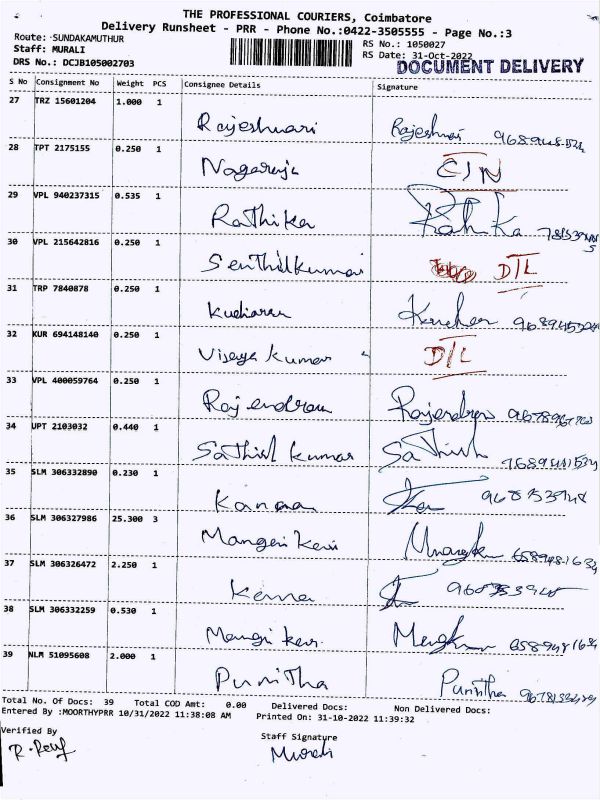 THE PROFESSIONAL COURIERS, Coimbatore
Delivery Runsheet - PRR - Phone No.:0422-3505555 - Page No.:3
Route: -SUNDAKAMUTHUR
RS No.: 1050027
Staff: MURALI
RS Date: 31-Oct-2022
DRS No.: DCJB105002703
DOCUMENT DELIVERY
S No Consignment No Weight PCS Consignee Details Signature
27 TRZ 15601204 1.000 1
Rajeshwari Rajeshwari
28 TPT 2175155 0.250 1
Nagaraja CIN
29 VPL 940237315 0.535 1
Rathika Rathika
30 VPL 215642816 0.250 1
Senthilkumar D/L
31 TRP 7840878 0.250 1
32 KUR 694148140 0.250 1
Vijaya kumar D/L
33 VPL 400059764 0.250 1
Rajendran Rajendran
34 UPT 2103032 0.440 1
Sathish kumar Sathish
35 SLM 306332890 0.230 1
36 SLM 306327986 25.300 3
37 SLM 306326472 2.250 1
38 SLM 306332259 0.530 1
39 NLM 51095608 2.000 1
Punitha Punitha
Total No. Of Docs: 39 Total COD Amt: 0.00 Delivered Docs: Non Delivered Docs:
Entered By :MOORTHYPRR 10/31/2022 11:38:08 AM Printed On: 31-10-2022 11:39:32
Verified By
Staff Signature
Murali